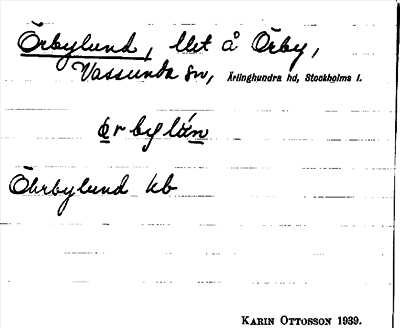 Örbylund, llet å Örby,
Vassunda sn, Ärlinghundra hd, Stockholms l.
ørbylán
Öhrbylund kb
KARIN OTTOSSON 1939.